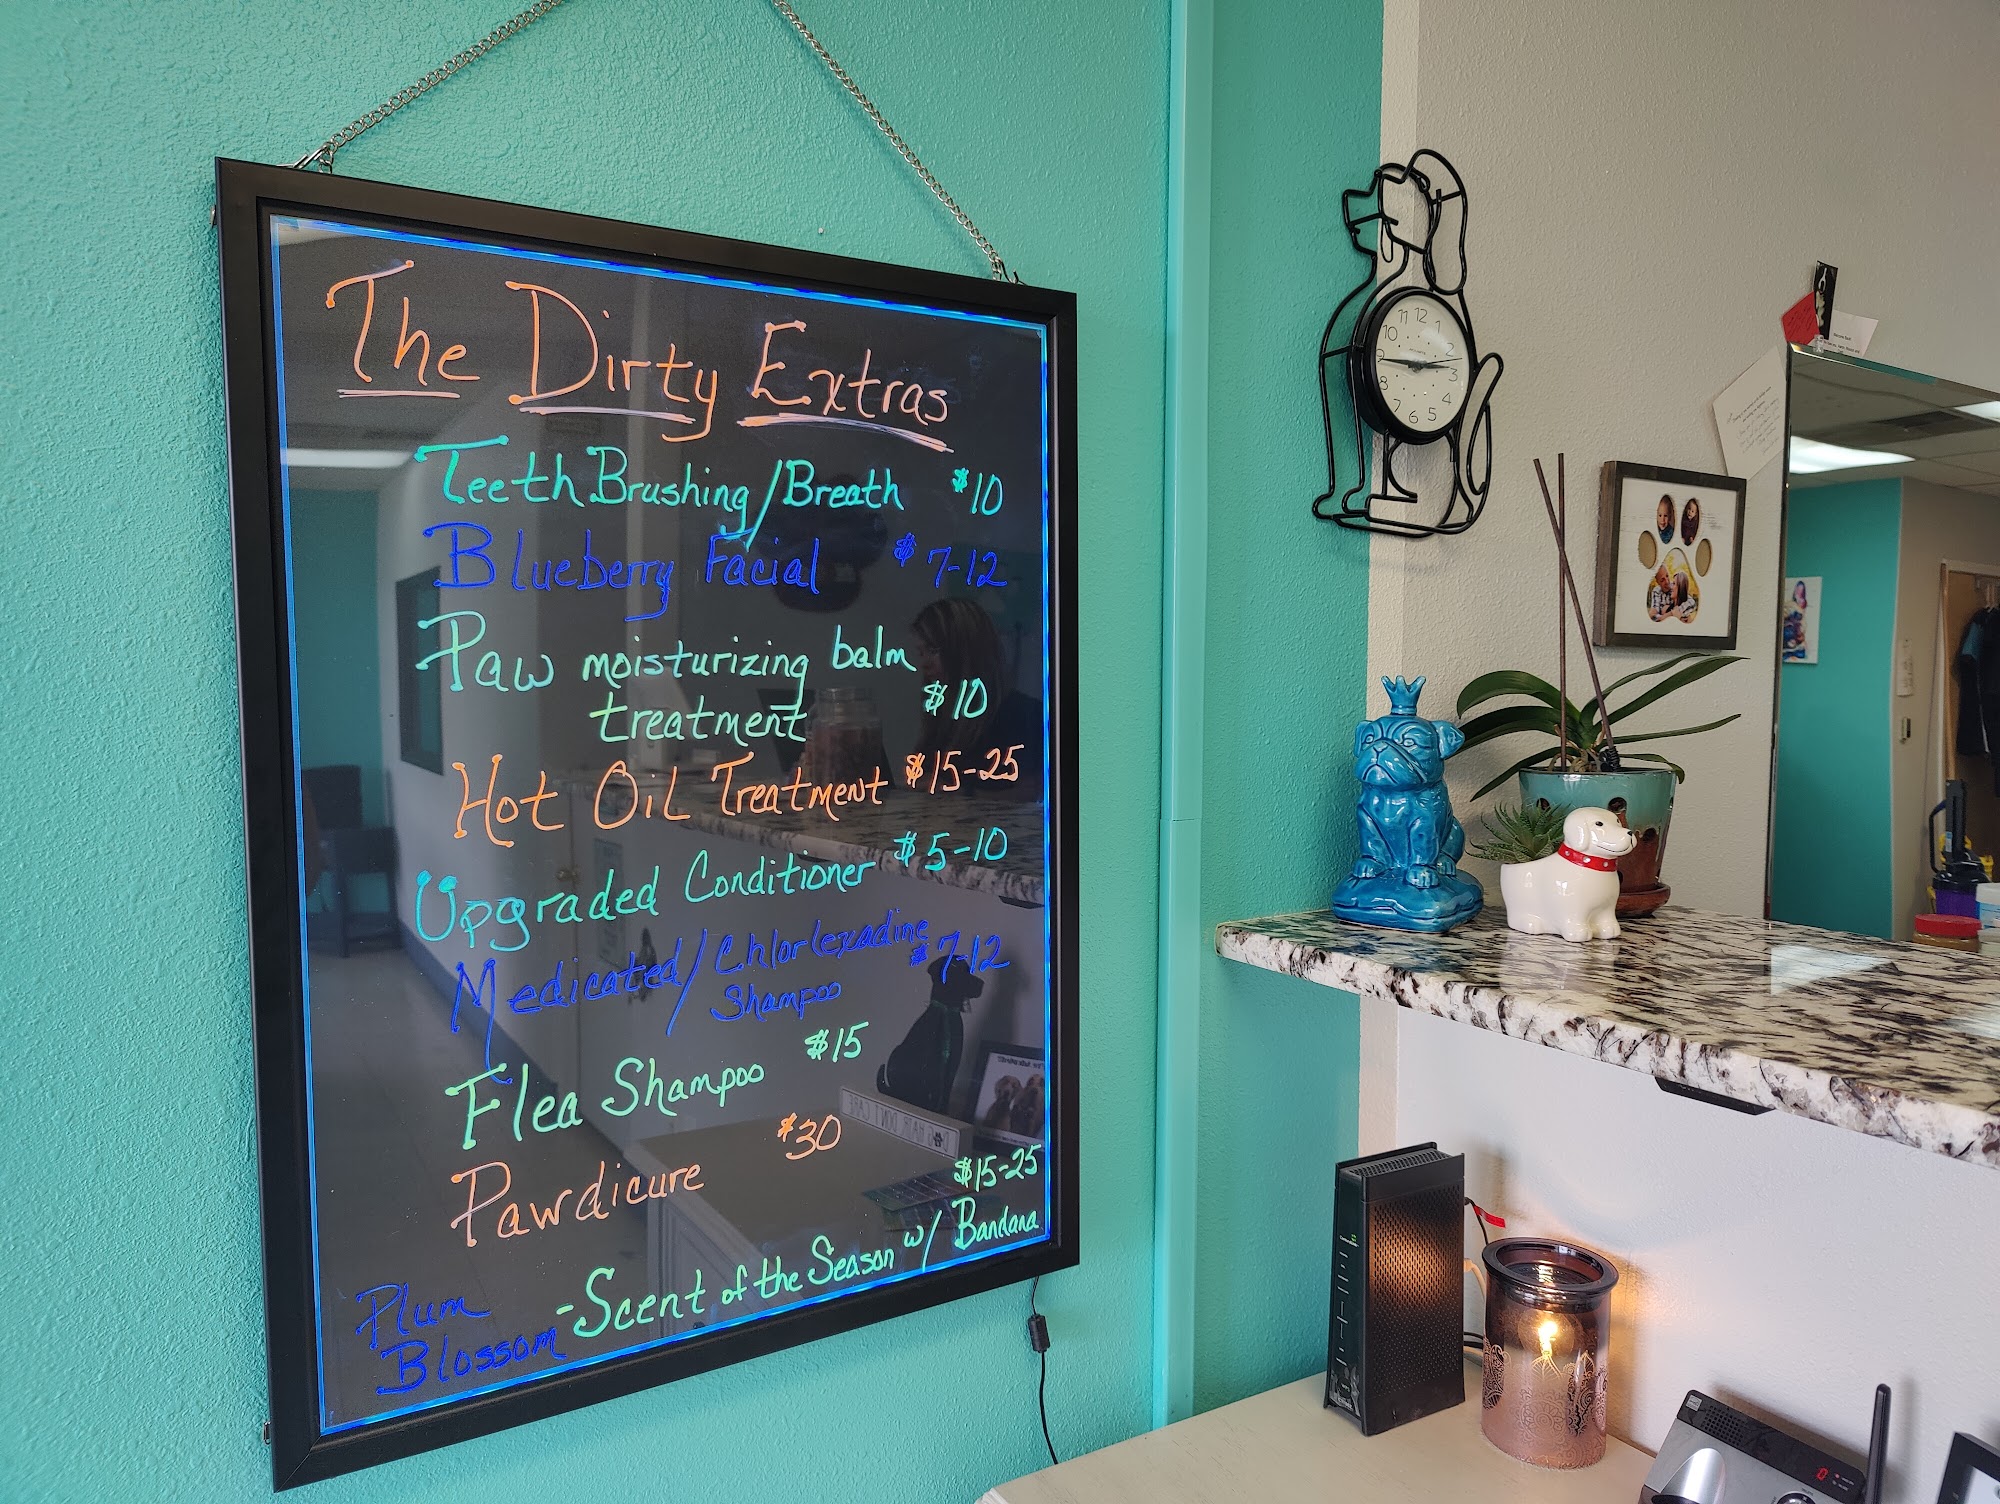 The Dirty Extras
Teeth Brushing/Breath $10
Blueberry Facial $7-12
Paw moisturizing balm
treatment $10
Hot Oil Treatment $15-25
Upgraded Conditioner $5-10
Medicated/Chlorlexadine
Shampoo $7-12
Flea Shampoo $15
Pawdicure $30
$15-25
Plum
Blossom - Scent of the Season w/ Bandana
11 12 1
10 2
9 3
8 4
7 6 5
DOG HAIR DON'T CARE
0